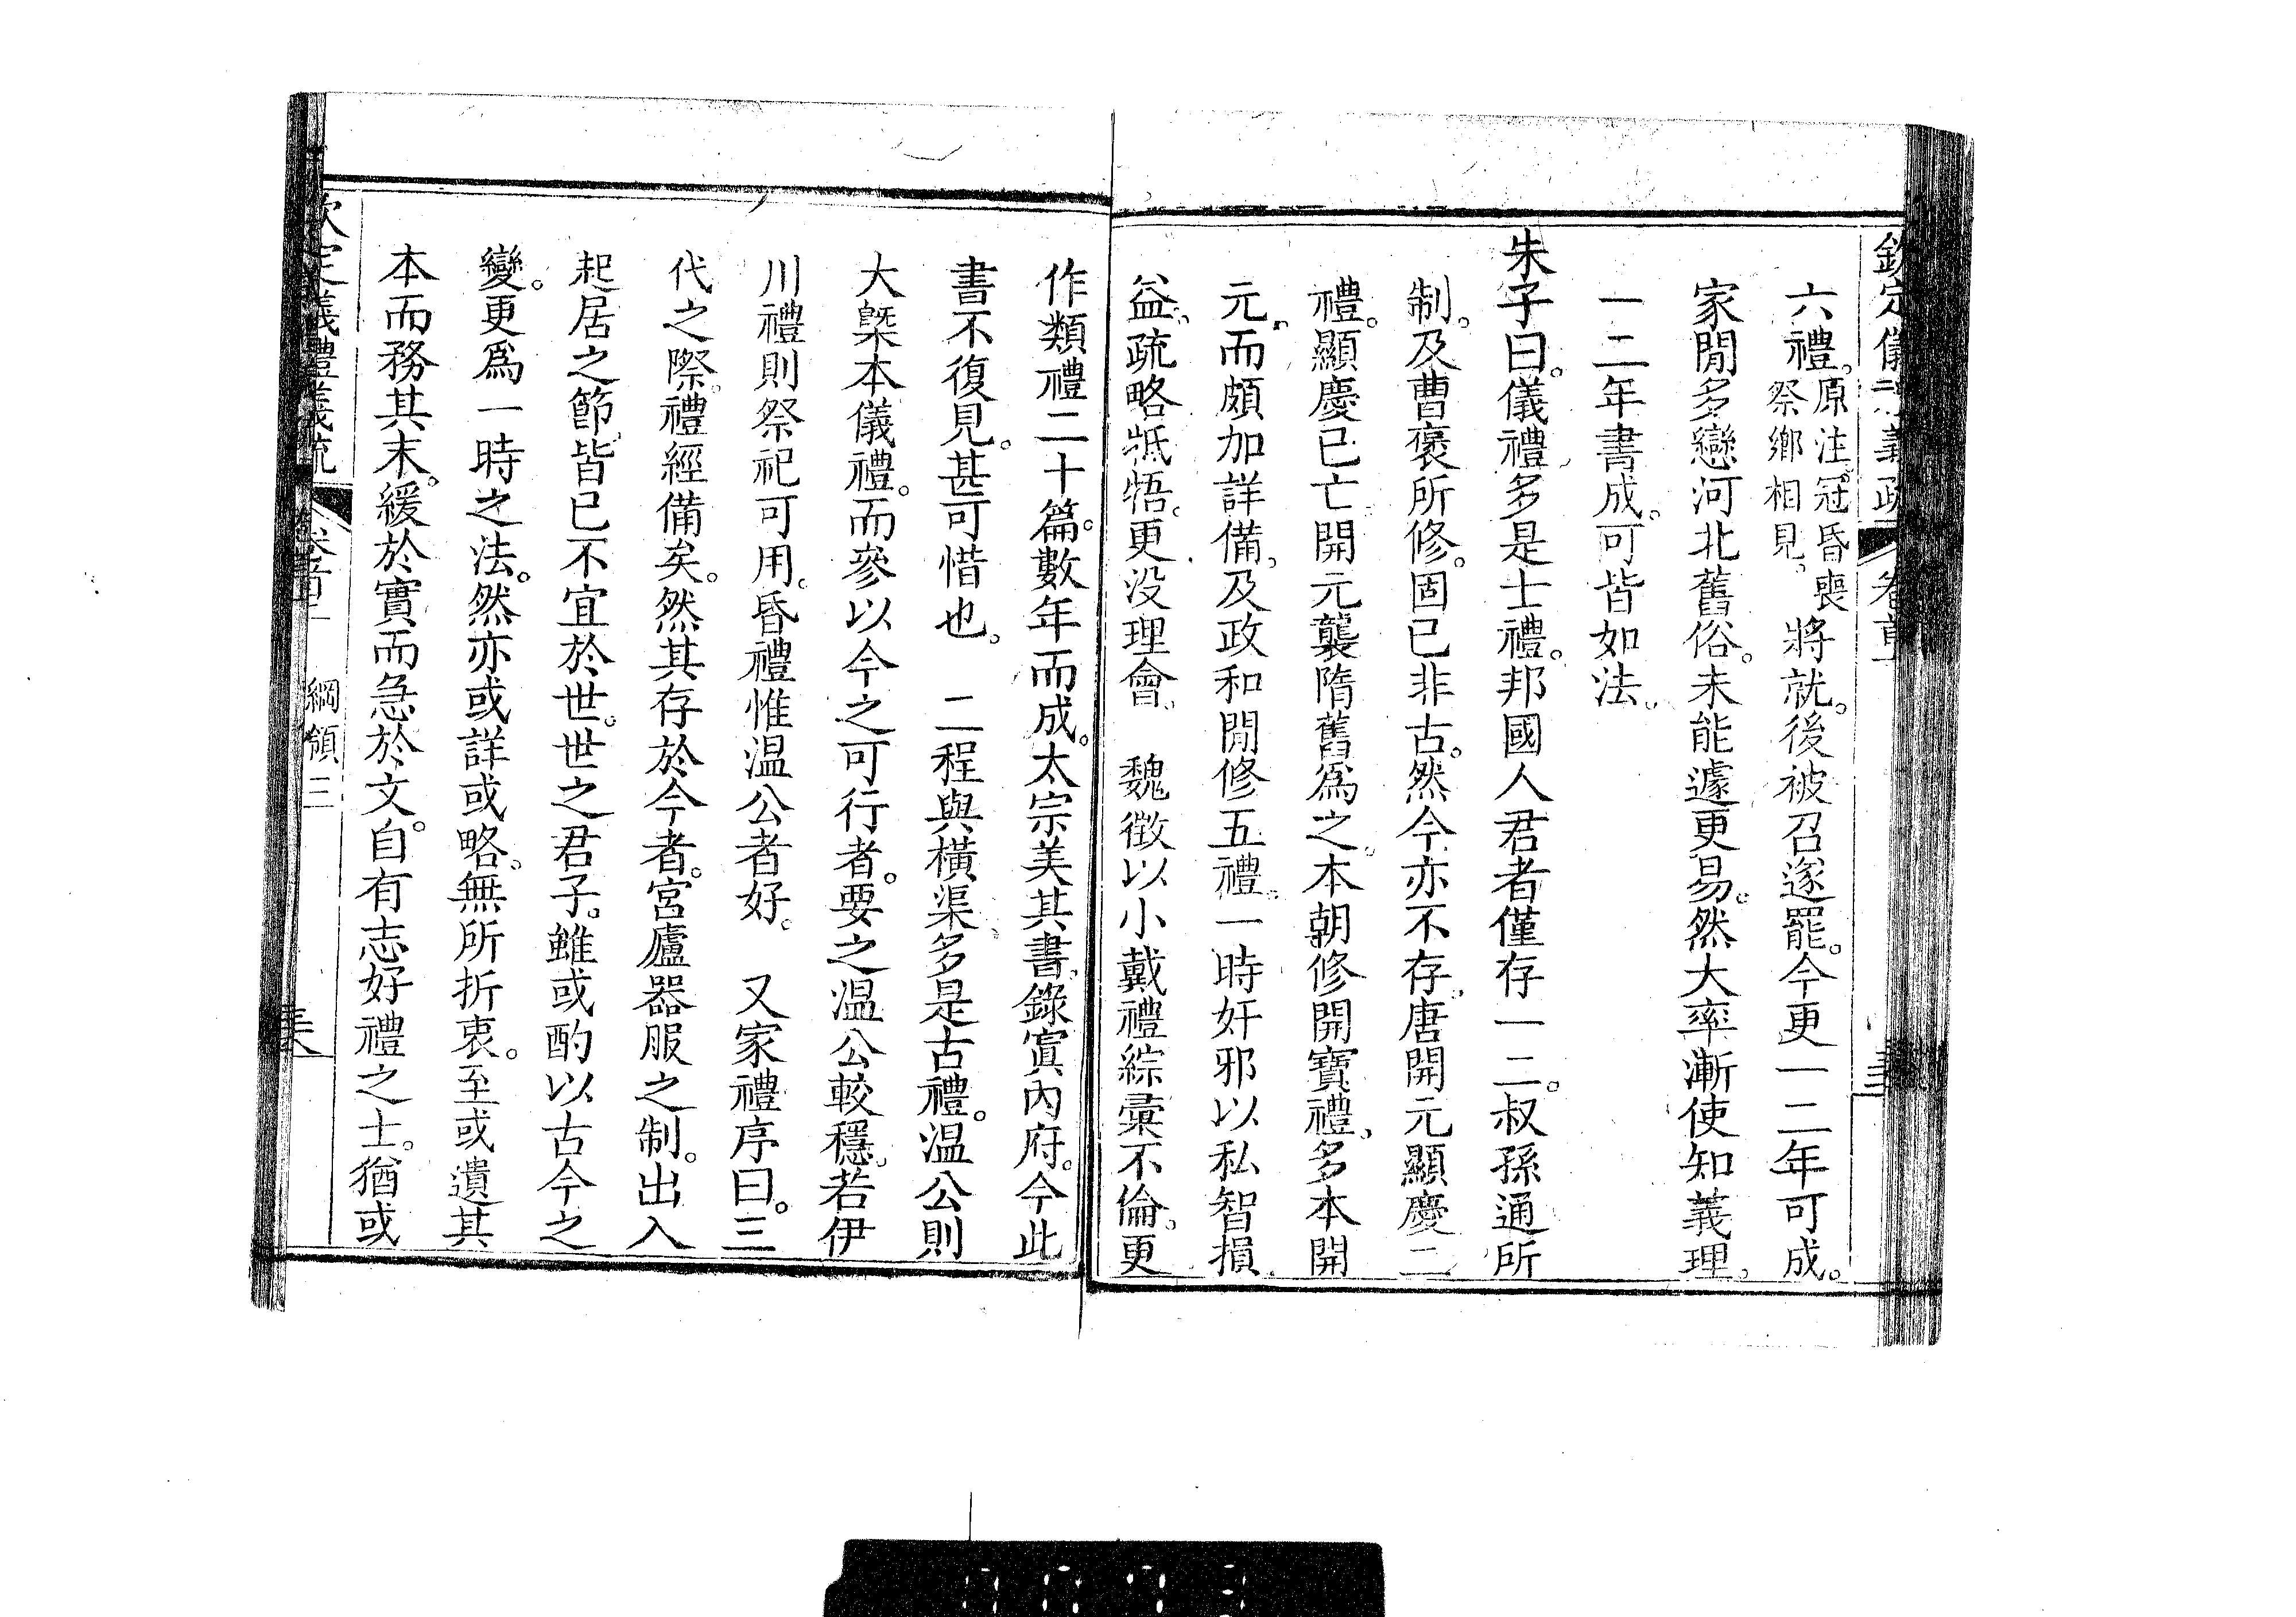 六禮。原注。冠昏喪祭鄉相見。將就。後被召遂罷。今更一二年可成。
家閒多戀河北舊俗。未能遽更易。然大率漸使知義理。
一二年書成。可皆如法。
朱子曰。儀禮多是士禮。邦國人君者僅存一二。叔孫通所
制。及曹褒所修。固已非古。然今亦不存。唐開元顯慶二
禮。顯慶已亡。開元襲隋舊爲之。本朝修開寶禮。多本開
元。而頗加詳備。及政和閒修五禮。一時奸邪以私智損
益。疏略牴牾。更没理會。　魏徵以小戴禮綜彙不倫。更
作類禮二十篇。數年而成。太宗美其書。錄寘內府。今此
書不復見。甚可惜也。　二程與橫渠。多是古禮。温公則
大槩本儀禮。而參以今之可行者。要之温公較穩。若伊
川禮則祭祀可用。昏禮惟温公者好。　又家禮序曰。三
代之際。禮經備矣。然其存於今者。宮廬器服之制。出入
起居之節。皆已不宜於世。世之君子。雖或酌以古今之
變。更爲一時之法。然亦或詳或略。無所折衷。至或遺其
本而務其末。緩於實而急於文。自有志好禮之士。猶或
欽定儀禮義疏
綱領三